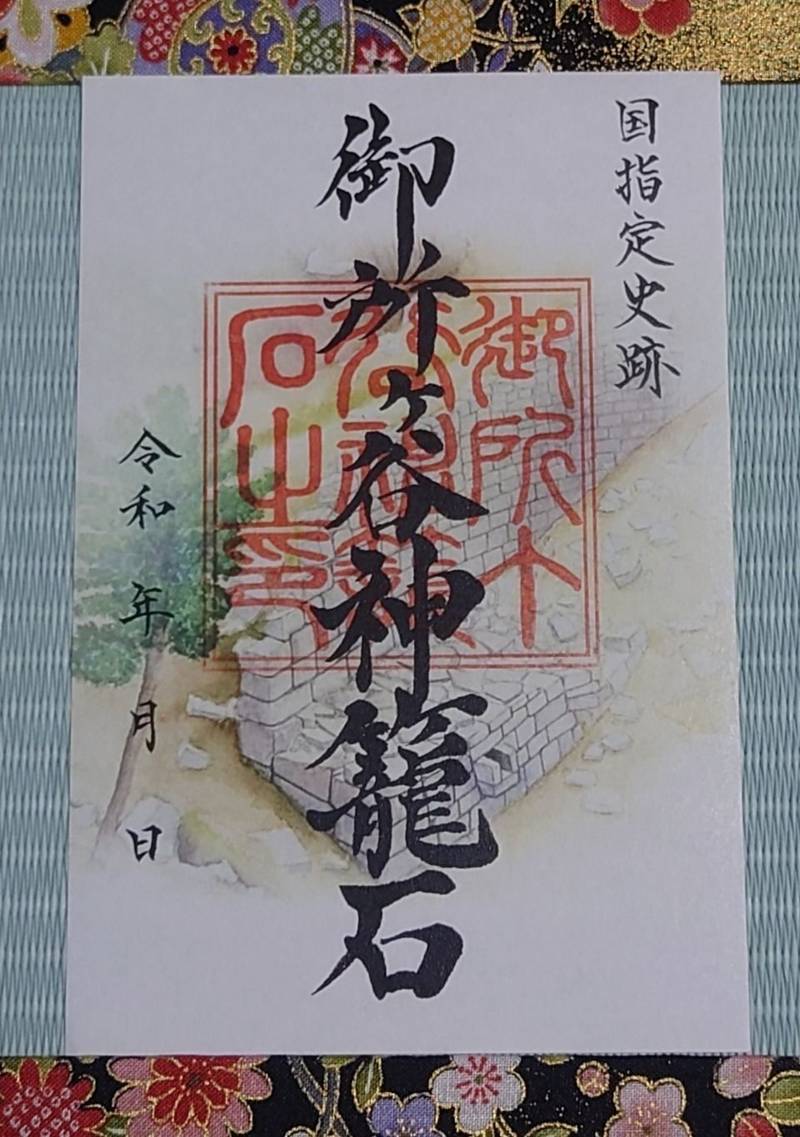 国指定史跡
御所ヶ谷神籠石
御所ヶ
谷神籠
石之印
令和 年 月 日